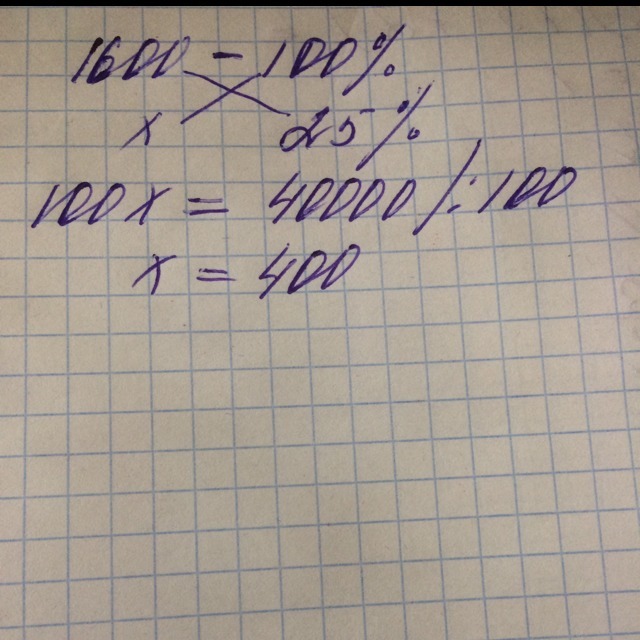 1600 - 100%
x 25%
100x = 40000 /:100
x = 400